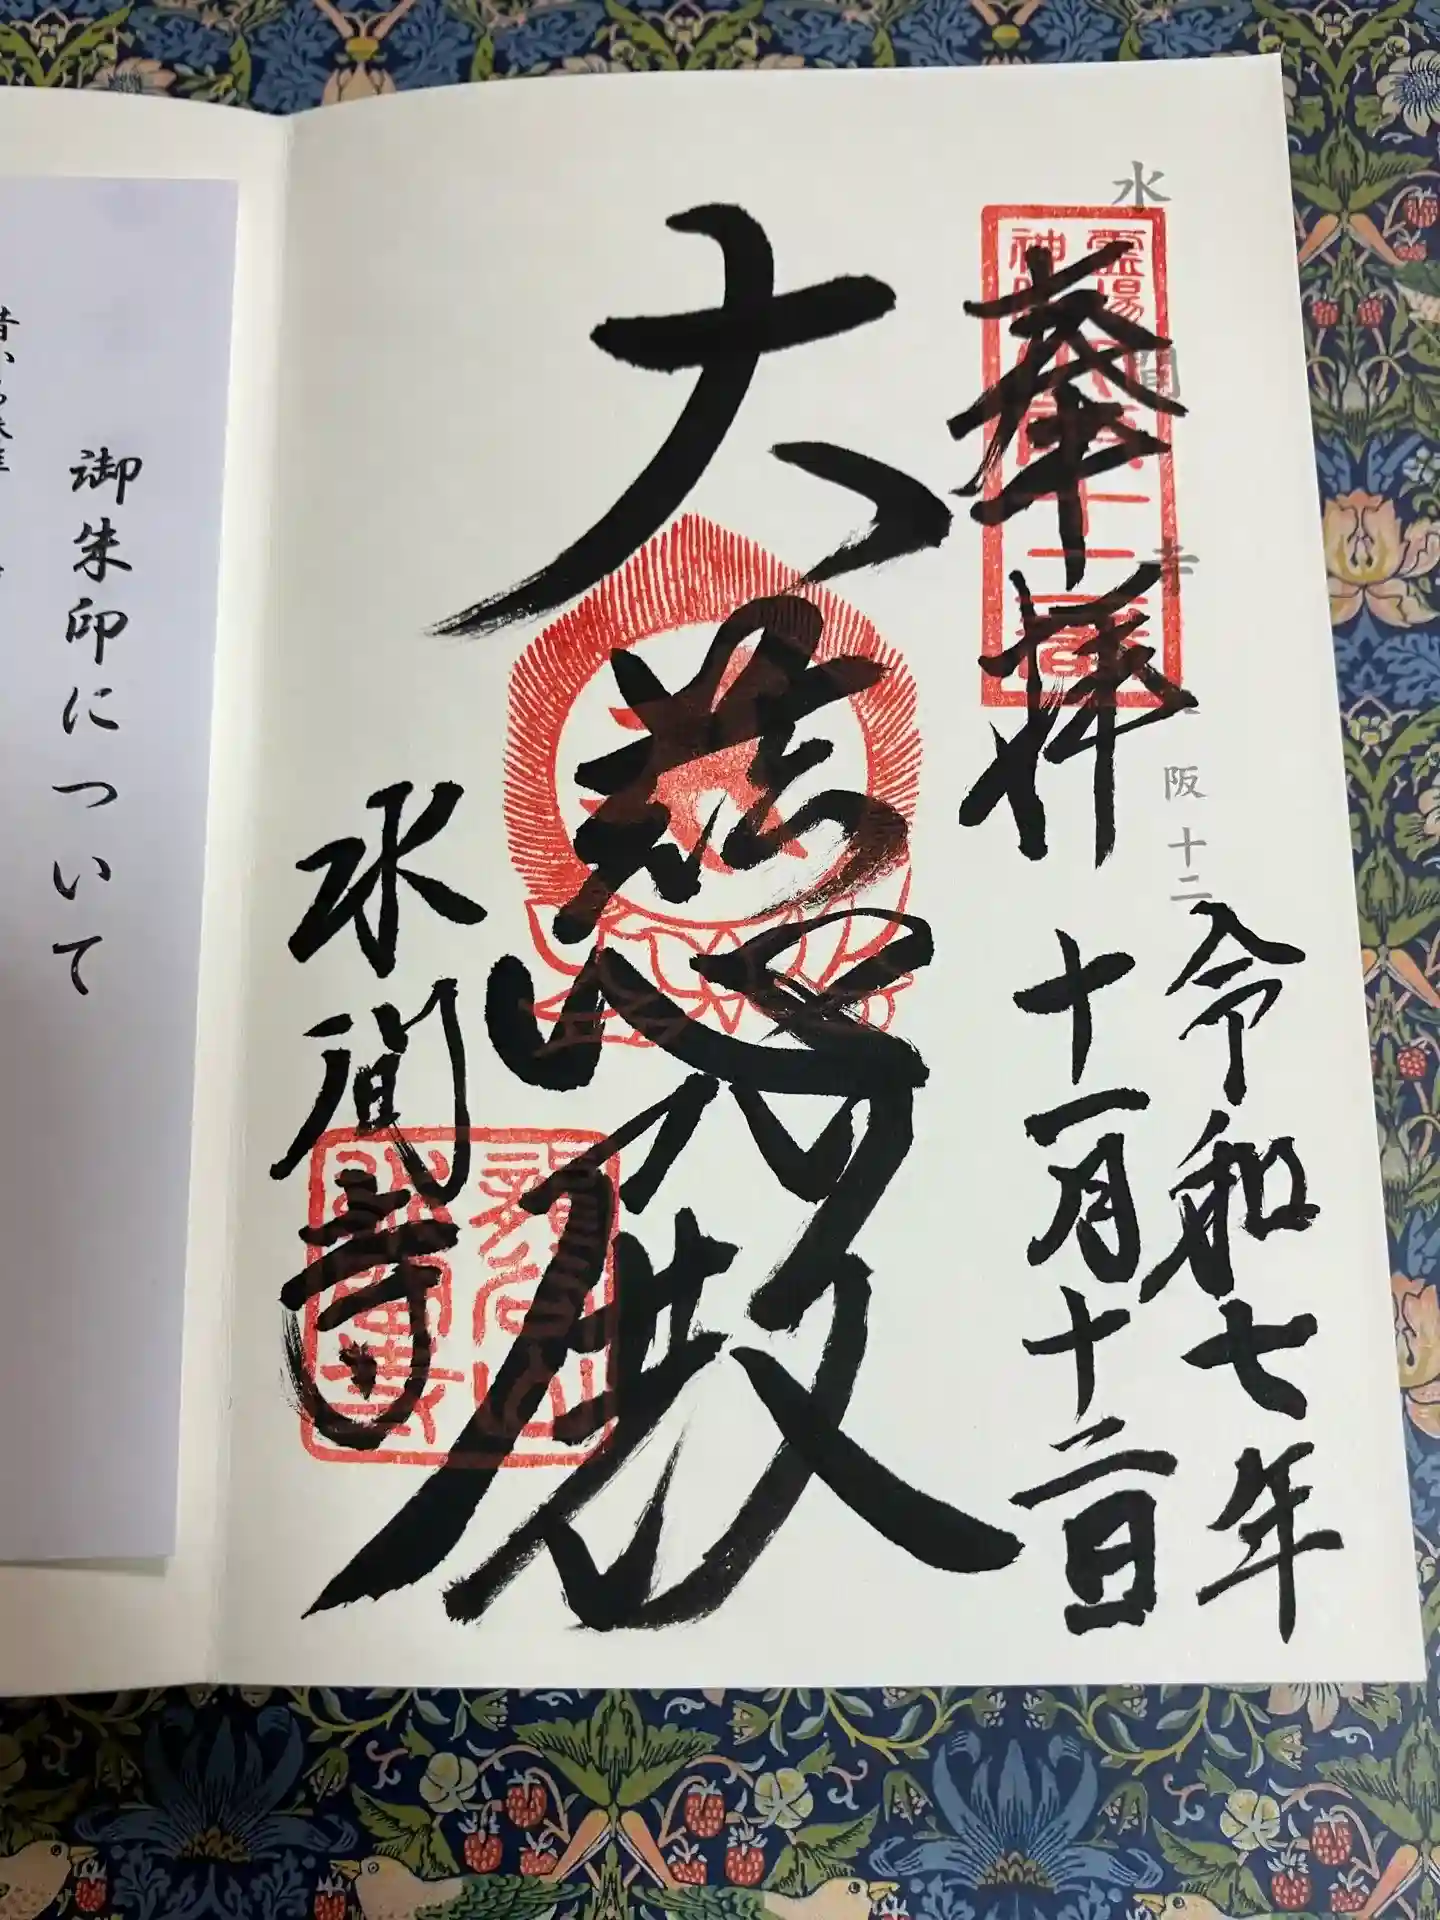 水間寺
阪十二
奉拝
令和七年
十一月十二日
大慈悲殿
水間寺
御朱印について